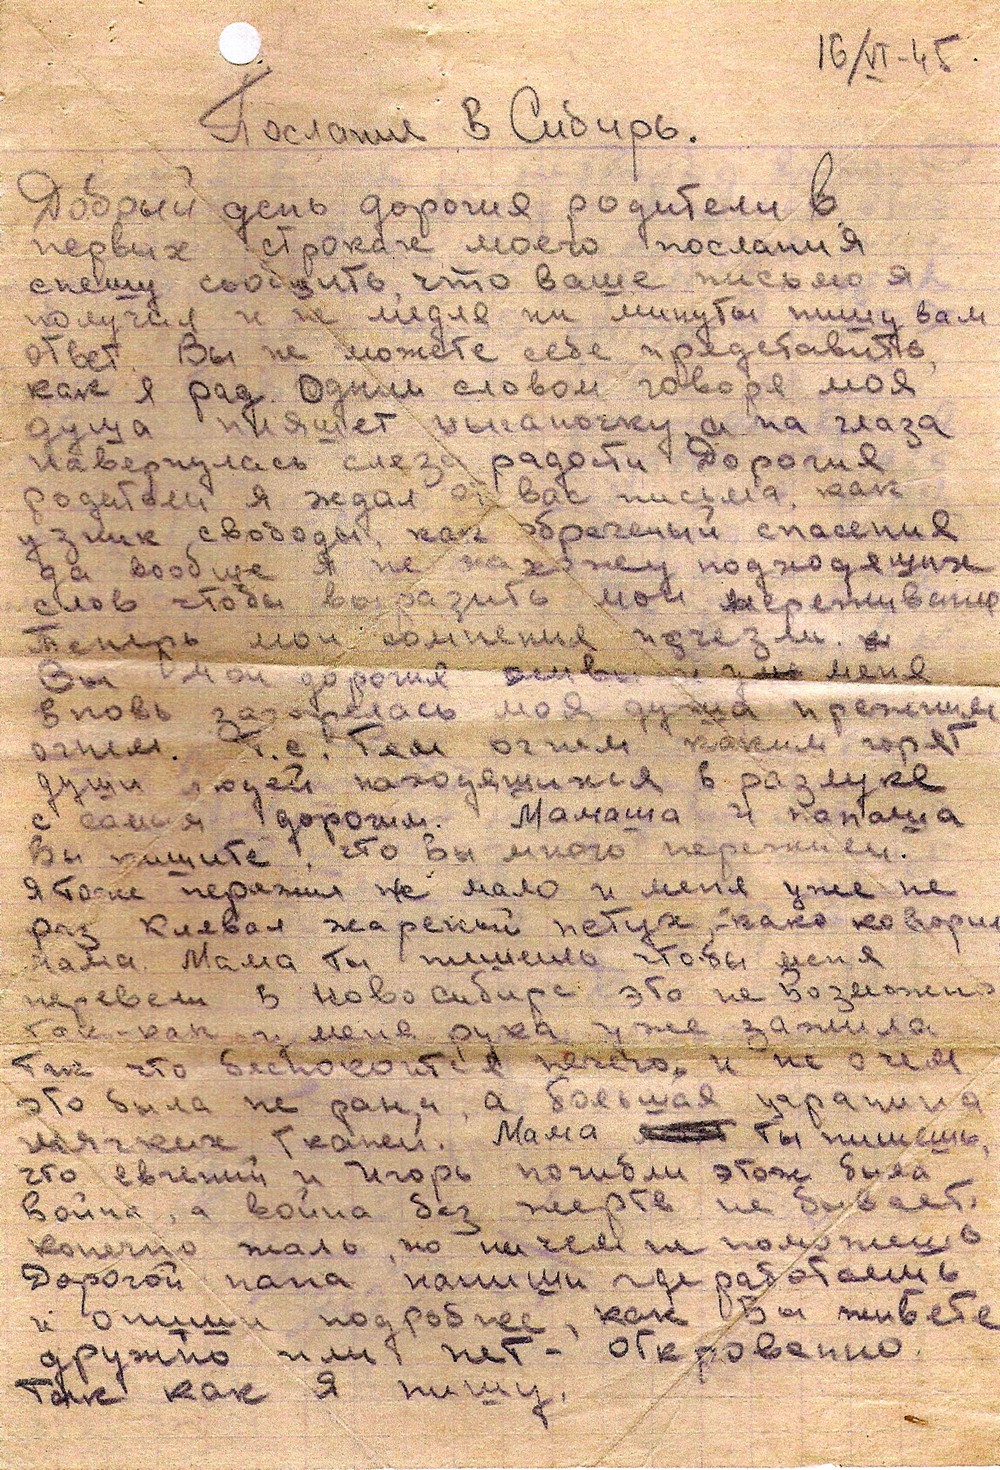 16/VI-45.
Послание в Сибирь.
Добрый день дорогия родители в
первых строках моего послания
спешу сообщить, что ваше письмо я
получил и не медля ни минуты пишу вам
ответ. Вы не можете себе представить,
как я рад. Одним словом говоря моя
душа пляшет цыганочку, а на глаза
навернулась слеза радости Дорогия
родители я ждал от вас письма, как
узник свободы, как обреченый спасения
да вообще я не нахожу подходящих
слов чтобы выразить мои переживания
Теперь мои сомнения исчезли. и
Вы мои дорогия живы и у меня
вновь загорелась моя душа прежним
огнем. Т.е. тем огнем каким горят
души людей находящихся в разлуке
с самым дорогим. Мамаша и папаша
Вы пишите, что Вы много пережили.
Я тоже пережил не мало и меня уже не
раз клевал жареный петух, - как говорит
мама. Мама ты пишешь чтобы меня
перевели в Новосибирс это не возможно
так-как у меня рука уже зажила
так что беспокоится нечего, и не о чем
это была не рана, а большая царапина
мягких тканей. Мама ты пишешь,
что Евгений и Игорь погибли этож была
война, а война без жертв не бывает.
конечно жаль, но ничем не поможешь
Дорогой папа напиши где работаешь
и опиши подробнее, как Вы живете
дружно или нет - откровенно.
так как я пишу.